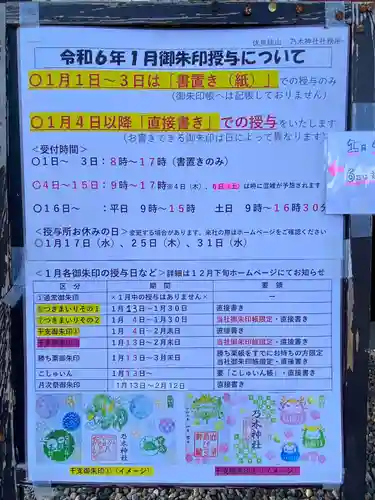 伏見桃山 乃木神社社務所
令和6年1月御朱印授与について
〇1月1日~3日は「書置き（紙）」での授与のみ
（御朱印帳へは記帳しておりません）
〇1月4日以降「直接書き」での授与をいたします
（お書きできる御朱印は日によって異なります）
＜受付時間＞
〇1日~ 3日：8時~17時（書置きのみ）
〇4日~15日：9時~17時※4日（木）、6日（土）は特に混雑が予想されます
〇16日~ ：平日 9時~15時 土日 9時~16時30分
＜授与所お休みの日＞変更する場合があります。来社の際はホームページをご確認ください
〇1月17日（水）、25日（木）、31日（水）
＜1月各御朱印の授与日など＞詳細は12月下旬ホームページにてお知らせ
区 分 期 間 要 領
①通常御朱印 ×1月中の授与はありません× ー
②つぎまいりその1 1月13日~1月30日 直接書き
③つぎまいりその2 1月 4日~1月30日 当社御朱印帳限定・直接書き
干支御朱印① 1月 4日~1月22日 直接書き
干支御朱印② 1月13日~ 当社御朱印帳限定・直接書き
勝ち栗御朱印 1月13日~3月末 勝ち栗帳をすでにお持ちの方限定
当社御朱印帳限定・直接書き
こしゅいん 1月13日~ 要「こしゅいん帳」・直接書き
月次祭御朱印 1月13日~2月12日 直接書き
乃木神社
干支御朱印①（イメージ）
干支御朱印②（イメージ）